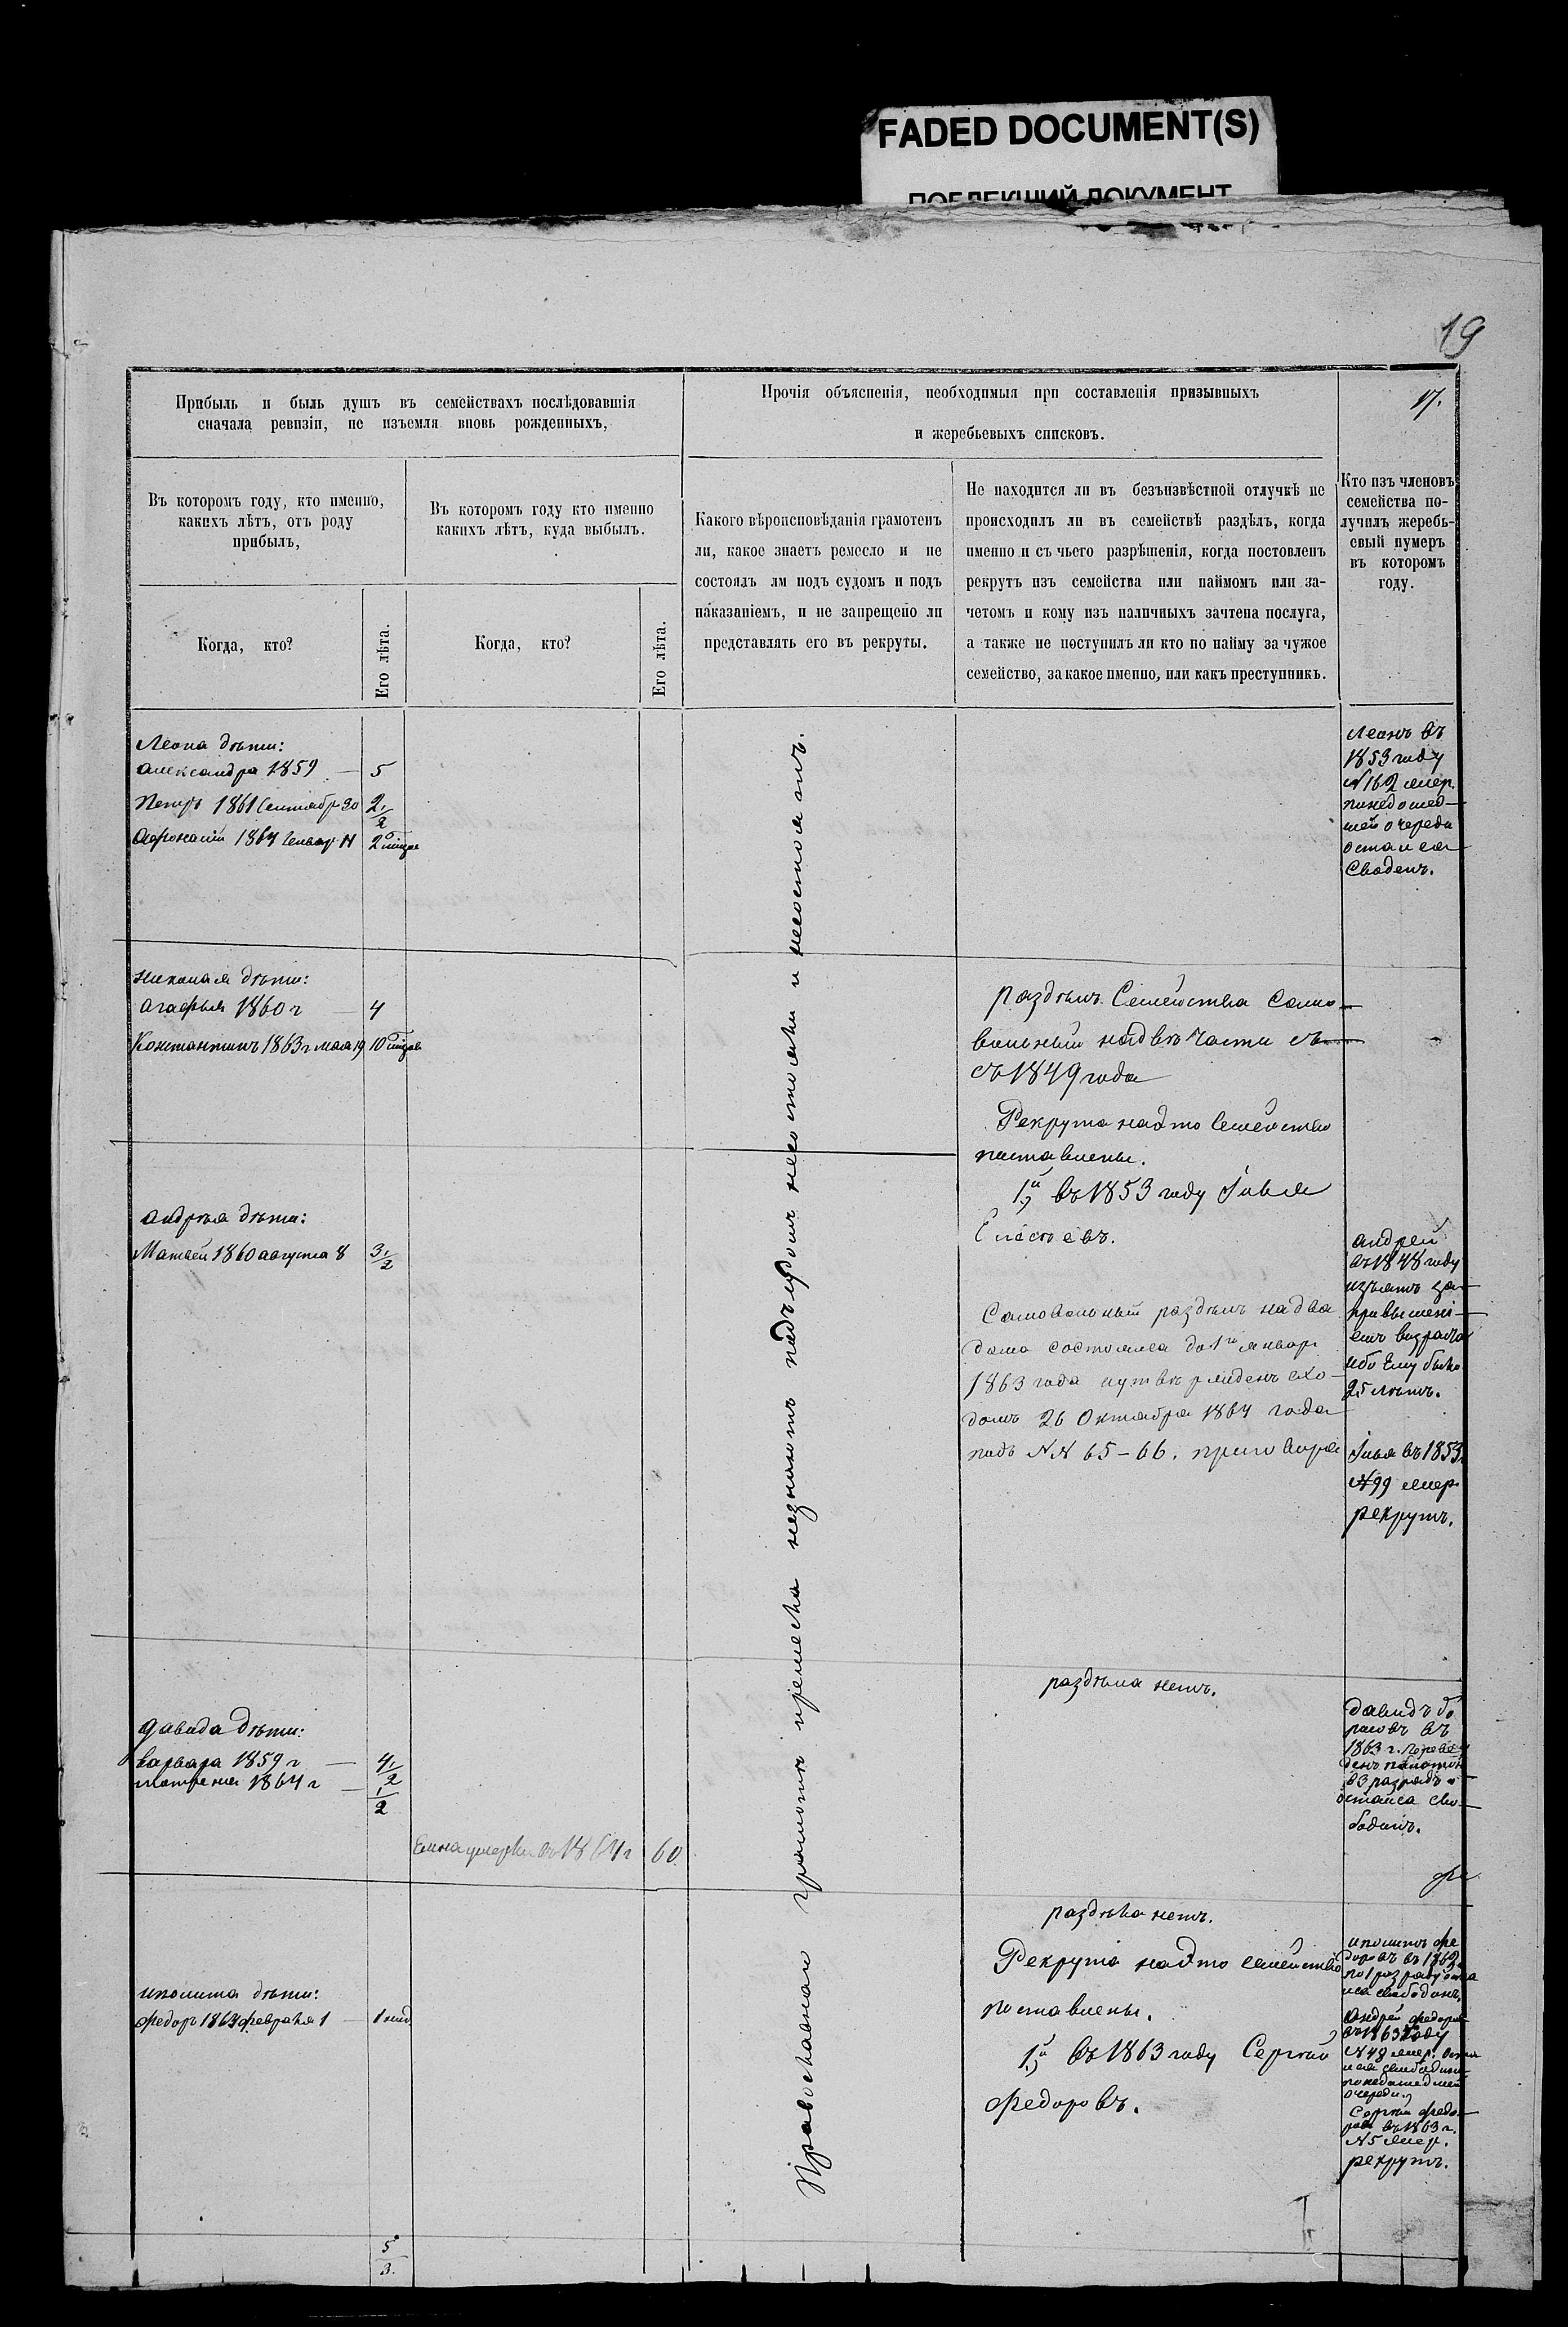 FADED DOCUMENT(S)
ПОБЛЕКШИЙ ДОКУМЕНТ
19
Прибыль и быль душъ въ семействахъ послѣдовавшія
сначала ревизіи, не изъемля вновь рожденныхъ,
Прочія объясненія, необходимыя при составленія призывныхъ
и жеребьевыхъ списковъ.
17.
Въ которомъ году, кто именно,
какихъ лѣтъ, отъ роду
прибылъ,
Въ которомъ году кто именно
какихъ лѣтъ, куда выбылъ.
Какого вѣроисповѣданія грамотенъ
ли, какое знаетъ ремесло и не
состоялъ лм подъ судомъ и подъ
наказаніемъ, и не запрещено ли
представлять его въ рекруты.
Не находится ли въ безъизвѣстной отлучкѣ не
происходилъ ли въ семействѣ раздѣлъ, когда
именно и съ чьего разрѣшенія, когда постовленъ
рекрутъ изъ семейства или наймомъ или за-
четомъ и кому изъ наличныхъ зачтена послуга,
а также не поступилъ ли кто по найму за чужое
семейство, за какое именно, или какъ преступникъ.
Кто изъ членовъ
семейства по-
лучилъ жеребь-
евый нумеръ
въ которомъ
году.
Когда, кто?
Его лѣта.
Когда, кто?
Его лѣта.
Леона дѣти:
Александра 1859 — 5
Петръ 1861 Сентябр 30 2 1/2
Афонасій 1864 Генвар 2
Леонъ въ
1853 году
N 162
шей очереди
остался
Свободенъ.
Православнаи грамотѣ иремесла незнаютъ подъ судомъ несостояли и несостоятъ.
Николая дѣти:
Агафья 1860 г — 4
Константинъ 1863 г мая 19 10
раздѣлъ Семейства Само-
вольный надвѣ части съ
съ 1849 года
Рекрута надто Семейство
поставлены.
1й въ 1853 году Илья
Андрея дѣти:
Матвей 1860 августа 8 3 1/2
Самовольный раздѣлъ на два
дома состоялся до 1го январ
1863 года иутвержденъ схо-
домъ 26 Октября 1864 года
подъ NN 65-66. приговора
Андрей
въ 1848 году
изъятъ за
ибо Ему было
25 лѣтъ.
Илья въ 1853
N 99
рекрутъ.
Давида дѣти:
Варвара 1859 г — 4 1/2
Матрена 1864 г — 1/2
умерла въ 1864 г 60
раздѣла нетъ.
Давидъ Бо
рисовъ въ
1863 г.
въ 3 разрядъ и
остался сво-
бодинъ.
Иполита дѣти:
Федоръ 1864 февраля 1 — 1
раздѣла нетъ.
Рекрута надто семейство
поставлены.
1й въ 1863 году Сергѣй
Федоровъ.
Иполитъ Фе
доровъ въ 1862
по 1 разряду оста
лся свободинъ.
Андрей Федоровъ
въ 1863 году
N 48 оста
лся свободинъ
понедошедшей
очереди.
Сергѣй Федо-
ровъ въ 1863 г.
N 5
рекрутъ.
5
3.